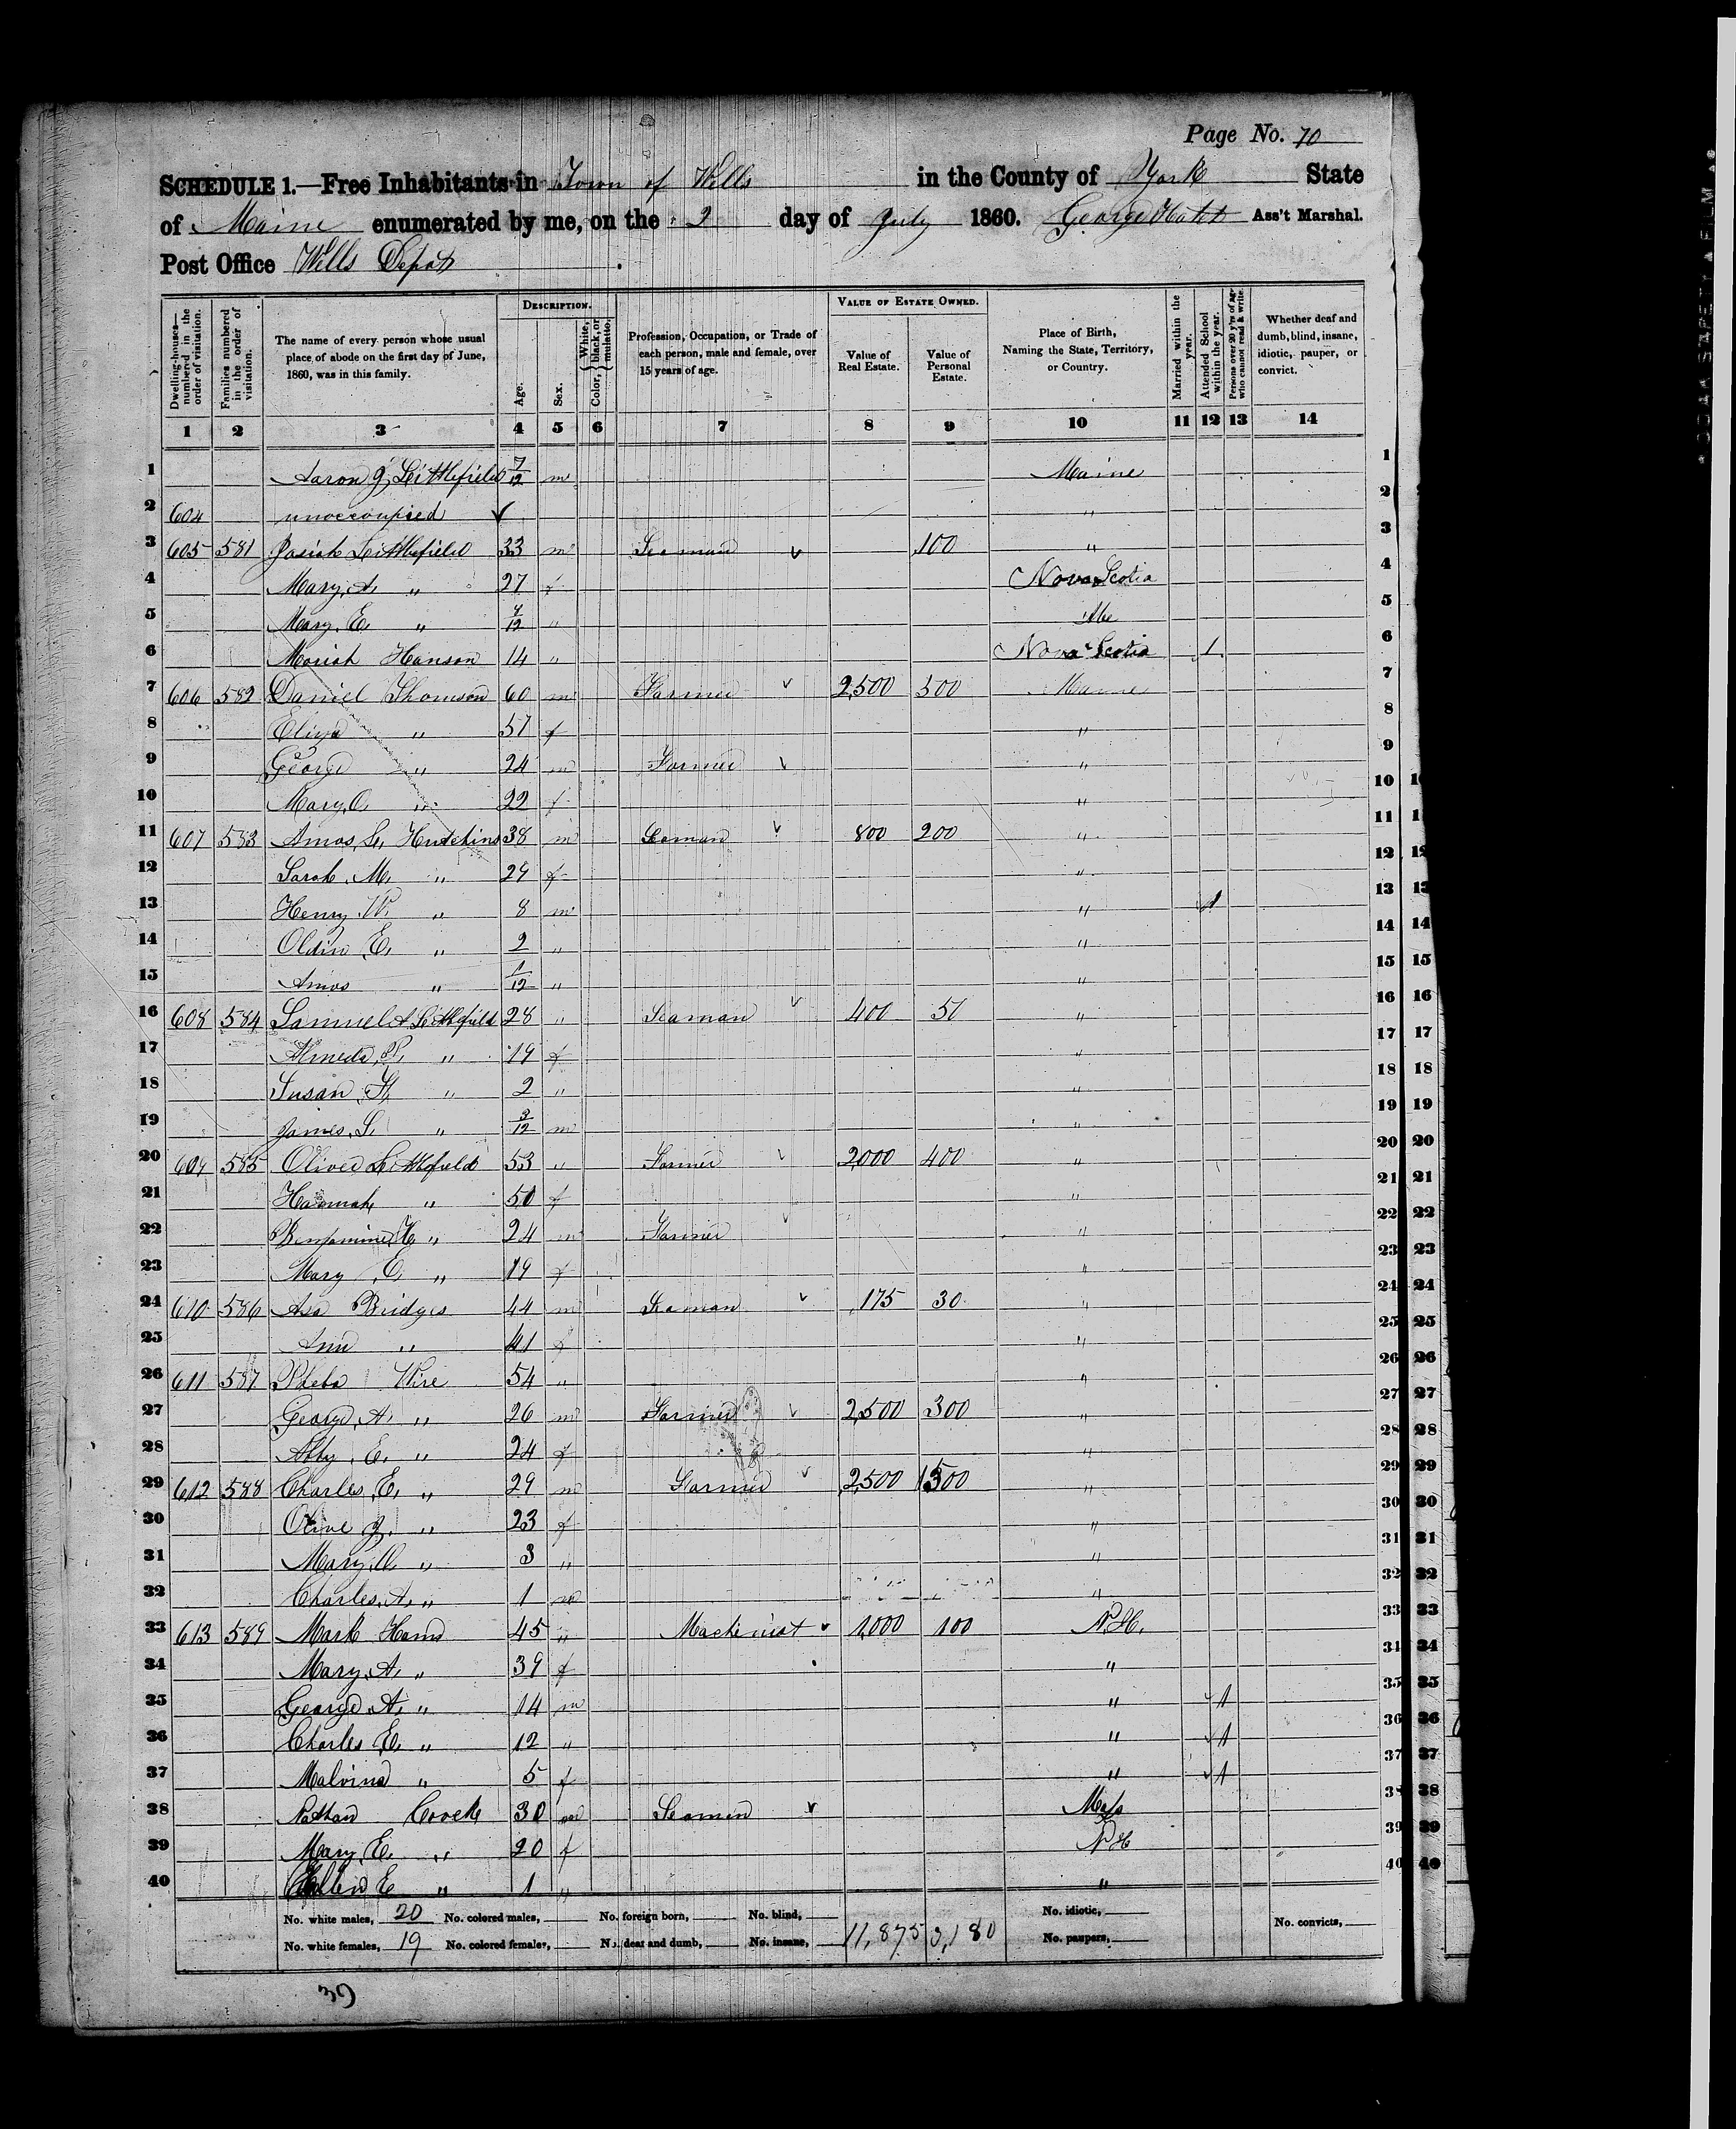 Page No. 70
SCHEDULE 1.—Free Inhabitants in Town of Wells in the County of York State
of Maine enumerated by me, on the 2 day of July 1860. George Hatch Ass't Marshal.
Post Office Wells Depot
Dwelling-houses—numbered in the order of visitation.
Families numbered in the order of visitation.
The name of every person whose usual place of abode on the first day of June, 1860, was in this family.
DESCRIPTION.
Age.
Sex.
Color, { White, black, or mulatto.
Profession, Occupation, or Trade of each person, male and female, over 15 years of age.
VALUE OF ESTATE OWNED.
Value of Real Estate.
Value of Personal Estate.
Place of Birth, Naming the State, Territory, or Country.
Married within the year.
Attended School within the year.
Persons over 20 y'rs of age who cannot read & write.
Whether deaf and dumb, blind, insane, idiotic, pauper, or convict.
1 2 3 4 5 6 7 8 9 10 11 12 13 14
1 Aaron J, Littlefield 7/12 m Maine 1
2 604 unoccoupied " 2
3 605 581 Josiah Littlefield 33 m Seaman 100 " 3
4 Mary, A, " 27 f Nova Scotia 4
5 Mary, E, " /12 " Me 5
6 Moriah Hanson 14 " Nova Scotia 1 6
7 606 582 Daniel Thomson 60 m Farmer 2,500 500 Maine 7
8 Eliza " 57 f " 8
9 George " 24 m Farmer " 9
10 Mary, O, " 22 f " 10
11 607 583 Amos, L, Hutchins 38 m Seaman 800 200 " 11
12 Sarah, M, " 29 f " 12
13 Henry, W, " 8 m " 1 13
14 Oldin E, " 2 " " 14
15 Amos " 1/12 " " 15
16 608 584 Samuel A Littlefield 28 " Seaman 400 50 " 16
17 Almeda, P, " 19 f " 17
18 Susan, H, " 2 " " 18
19 James, L, " 3/12 m " 19
20 609 585 Oliver Littlefield 53 " Farmer 2000 400 " 20
21 Hannah " 50 f " 21
22 Benjamine, H, " 24 m Farmer " 22
23 Mary, O, " 19 f " 23
24 610 586 Asa Bridges 44 m Seaman 175 30 " 24
25 Ann " 41 f " 25
26 611 587 Pheba Wire 54 " " 26
27 George, A, " 26 m Farmer 2,500 300 " 27
28 Abby, E, " 24 f " 28
29 612 588 Charles, E, " 29 m Farmer 2,500 1500 " 29
30 Olive J, " 23 f " 30
31 Mary, O, " 3 " " 31
32 Charles, A, " 1 m " 32
33 613 589 Mark Ham 45 " Machinist 1,000 100 N.H. 33
34 Mary, A, " 39 f " 34
35 George, A, " 14 m " 1 35
36 Charles, E, " 12 " " 1 36
37 Malvina " 5 f " 1 37
38 Nathan Crock 30 m Seamen Mass 38
39 Mary, E, " 20 f N H 39
40 Ellen E " 1 " " 40
No. white males, 20 No. colored males, No. foreign born, No. blind, No. idiotic,
No. white females, 19 No. colored females, No. deaf and dumb, No. insane, 11,875 3,180 No. paupers, No. convicts,